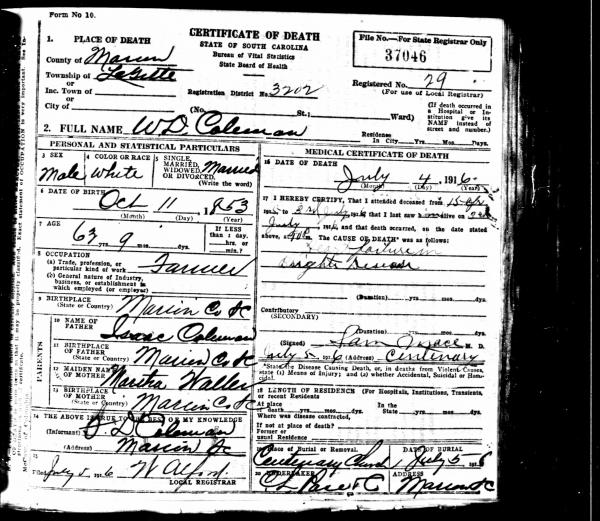 Form No 10.
CERTIFICATE OF DEATH
STATE OF SOUTH CAROLINA
Bureau of Vital Statistics
State Board of Health
File No.—For State Registrar Only
37046
1. PLACE OF DEATH
County of Marion
Township of LaGette
or
Inc. Town of
or
City of
Registration District No. 3202
Registered No. 29
(For use of Local Registrar)
(No. St.; Ward)
(If death occurred in a Hospital or Institution give its NAME instead of street and number.)
2. FULL NAME W.D. Coleman
Residence In City Yrs. Mos. Days.
PERSONAL AND STATISTICAL PARTICULARS
3 SEX Male
4 COLOR OR RACE White
5 SINGLE, MARRIED, WIDOWED, OR DIVORCED. Married
(Write the word)
6 DATE OF BIRTH
Oct 11 1853
(Month) (Day) (Year)
7 AGE
63 yrs. 9 mos. ds.
If LESS than 1 day, hrs. or min.?
8 OCCUPATION
(a) Trade, profession, or particular kind of work Farmer
(b) General nature of Industry, business, or establishment in which employed (or employer)
9 BIRTHPLACE
(State or Country) Marion Co SC
PARENTS
10 NAME OF FATHER Isaac Coleman
11 BIRTHPLACE OF FATHER
(State or Country) Marion Co SC
12 MAIDEN NAME OF MOTHER Martha Waller
13 BIRTHPLACE OF MOTHER
(State or Country) Marion Co SC
14 THE ABOVE IS TRUE TO THE BEST OF MY KNOWLEDGE
(Informant) J. D. Coleman
(Address) Marion SC
15
Filed July 5 1916 W Alford
LOCAL REGISTRAR
MEDICAL CERTIFICATE OF DEATH
16 DATE OF DEATH
July 4 1916
(Month) (Day) (Year)
17 I HEREBY CERTIFY, That I attended deceased from
to that I last saw alive on
July and that death occurred, on the date stated
above, The CAUSE OF DEATH was as follows:
Brights Disease
(Duration) yrs. mos. ds.
Contributory
(SECONDARY)
(Duration) yrs. mos. ds.
(Signed) Sam Grace M. D.
July 5 1916 (Address) Centenary
*State the Disease Causing Death, or, in deaths from Violent Causes, state (1) Means of Injury; and (2) whether Accidental, Suicidal or Homicidal.
18 LENGTH OF RESIDENCE (For Hospitals, Institutions, Transients, or recent Residents
At place of death yrs. mos. ds. In the State yrs. mos. ds.
Where was disease contracted,
If not at place of death?
Former or usual Residence
19 Place of Burial or Removal. DATE OF BURIAL
Centenary Church July 5 1916
20 UNDERTAKER ADDRESS
Marion SC